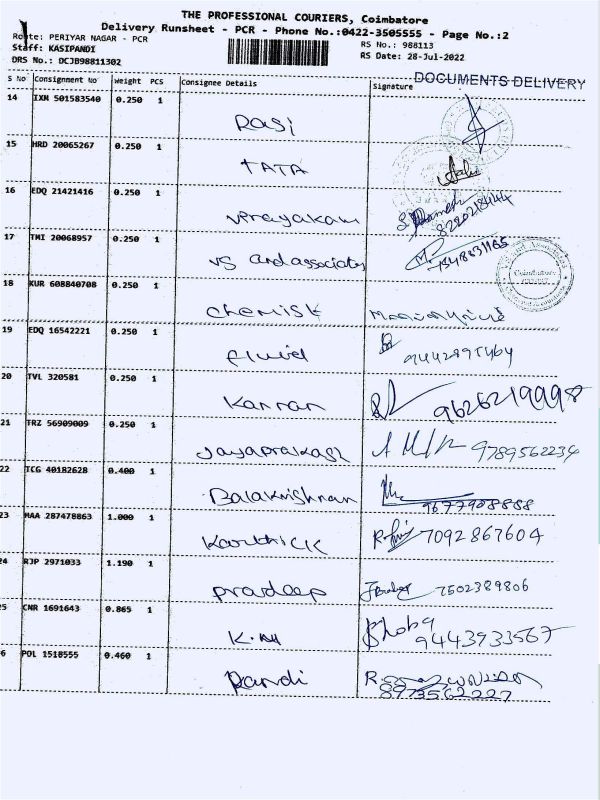 THE PROFESSIONAL COURIERS, Coimbatore
Delivery Runsheet - PCR - Phone No.:0422-3505555 - Page No.:2
Route: PERIYAR NAGAR - PCR
RS No.: 988113
Staff: KASIPANDI
RS Date: 28-Jul-2022
DRS No.: DCJB98811302
DOCUMENTS DELIVERY
S No Consignment No Weight PCS Consignee Details Signature
14 IXM 501583540 0.250 1 Rasi
15 HRD 20065267 0.250 1 TATA
16 EDQ 21421416 0.250 1
17 TMI 20068957 0.250 1 VS and associates 7548831165
18 KUR 608840708 0.250 1 Chemist
19 EDQ 16542221 0.250 1 fluid
20 TVL 320581 0.250 1 Kannan 9626219998
21 TRZ 56909009 0.250 1 Jayaprakash 9789562234
22 TCG 40182628 0.400 1 Balakrishnan 9677908888
23 MAA 287478863 1.000 1 Karthick 7092867604
24 RJP 2971033 1.190 1 pradeep 7502389806
25 CNR 1691643 0.865 1 Shoba 9443933567
26 POL 1518555 0.460 1 Pandi 8973562227